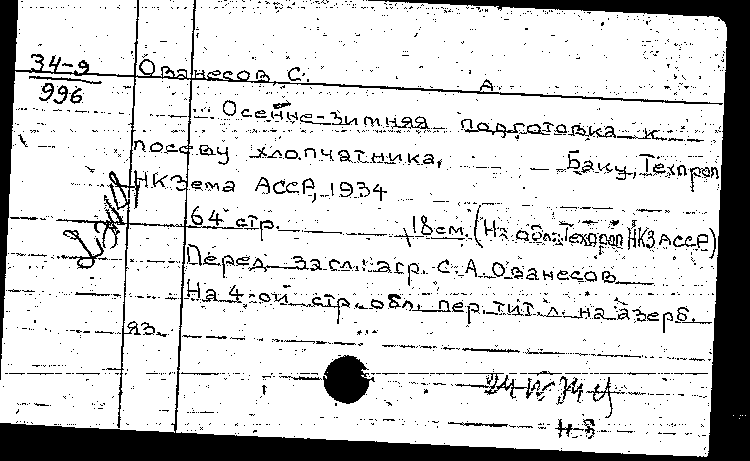 34-9
996
Ованесов, С. А.
... Осенне-зимняя подготовка к
посеву хлопчатника. Баку, Техпроп
НКЗема АССР, 1934
64 стр. 18 см. (На обл.: Техпроп НКЗ АССР)
Перед. засл.: агр. С.А. Ованесов
На 4-ой стр. обл. пер. тит. л. на азерб.
яз.